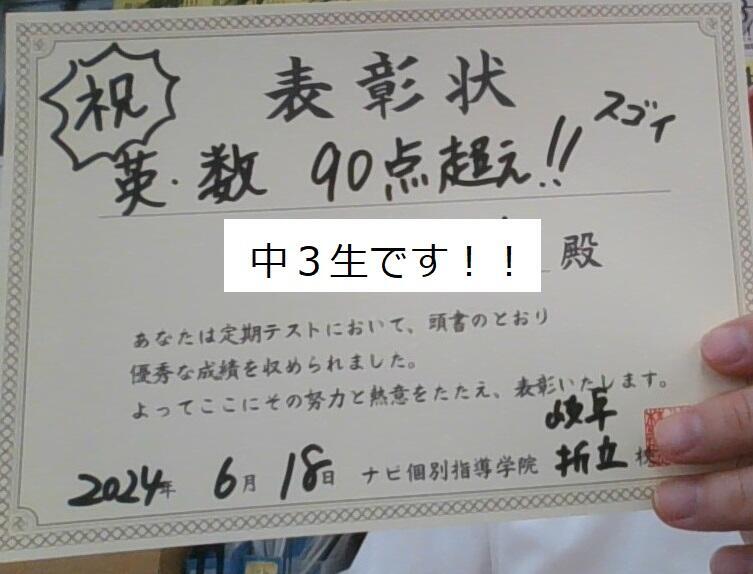 祝
表彰状
英・数 90点超え!! スゴイ
中3生です！！
殿
あなたは定期テストにおいて、頭書のとおり
優秀な成績を収められました。
よってここにその努力と熱意をたたえ、表彰いたします。
岐阜
2024年 6月 18日 ナビ個別指導学院 折立 校